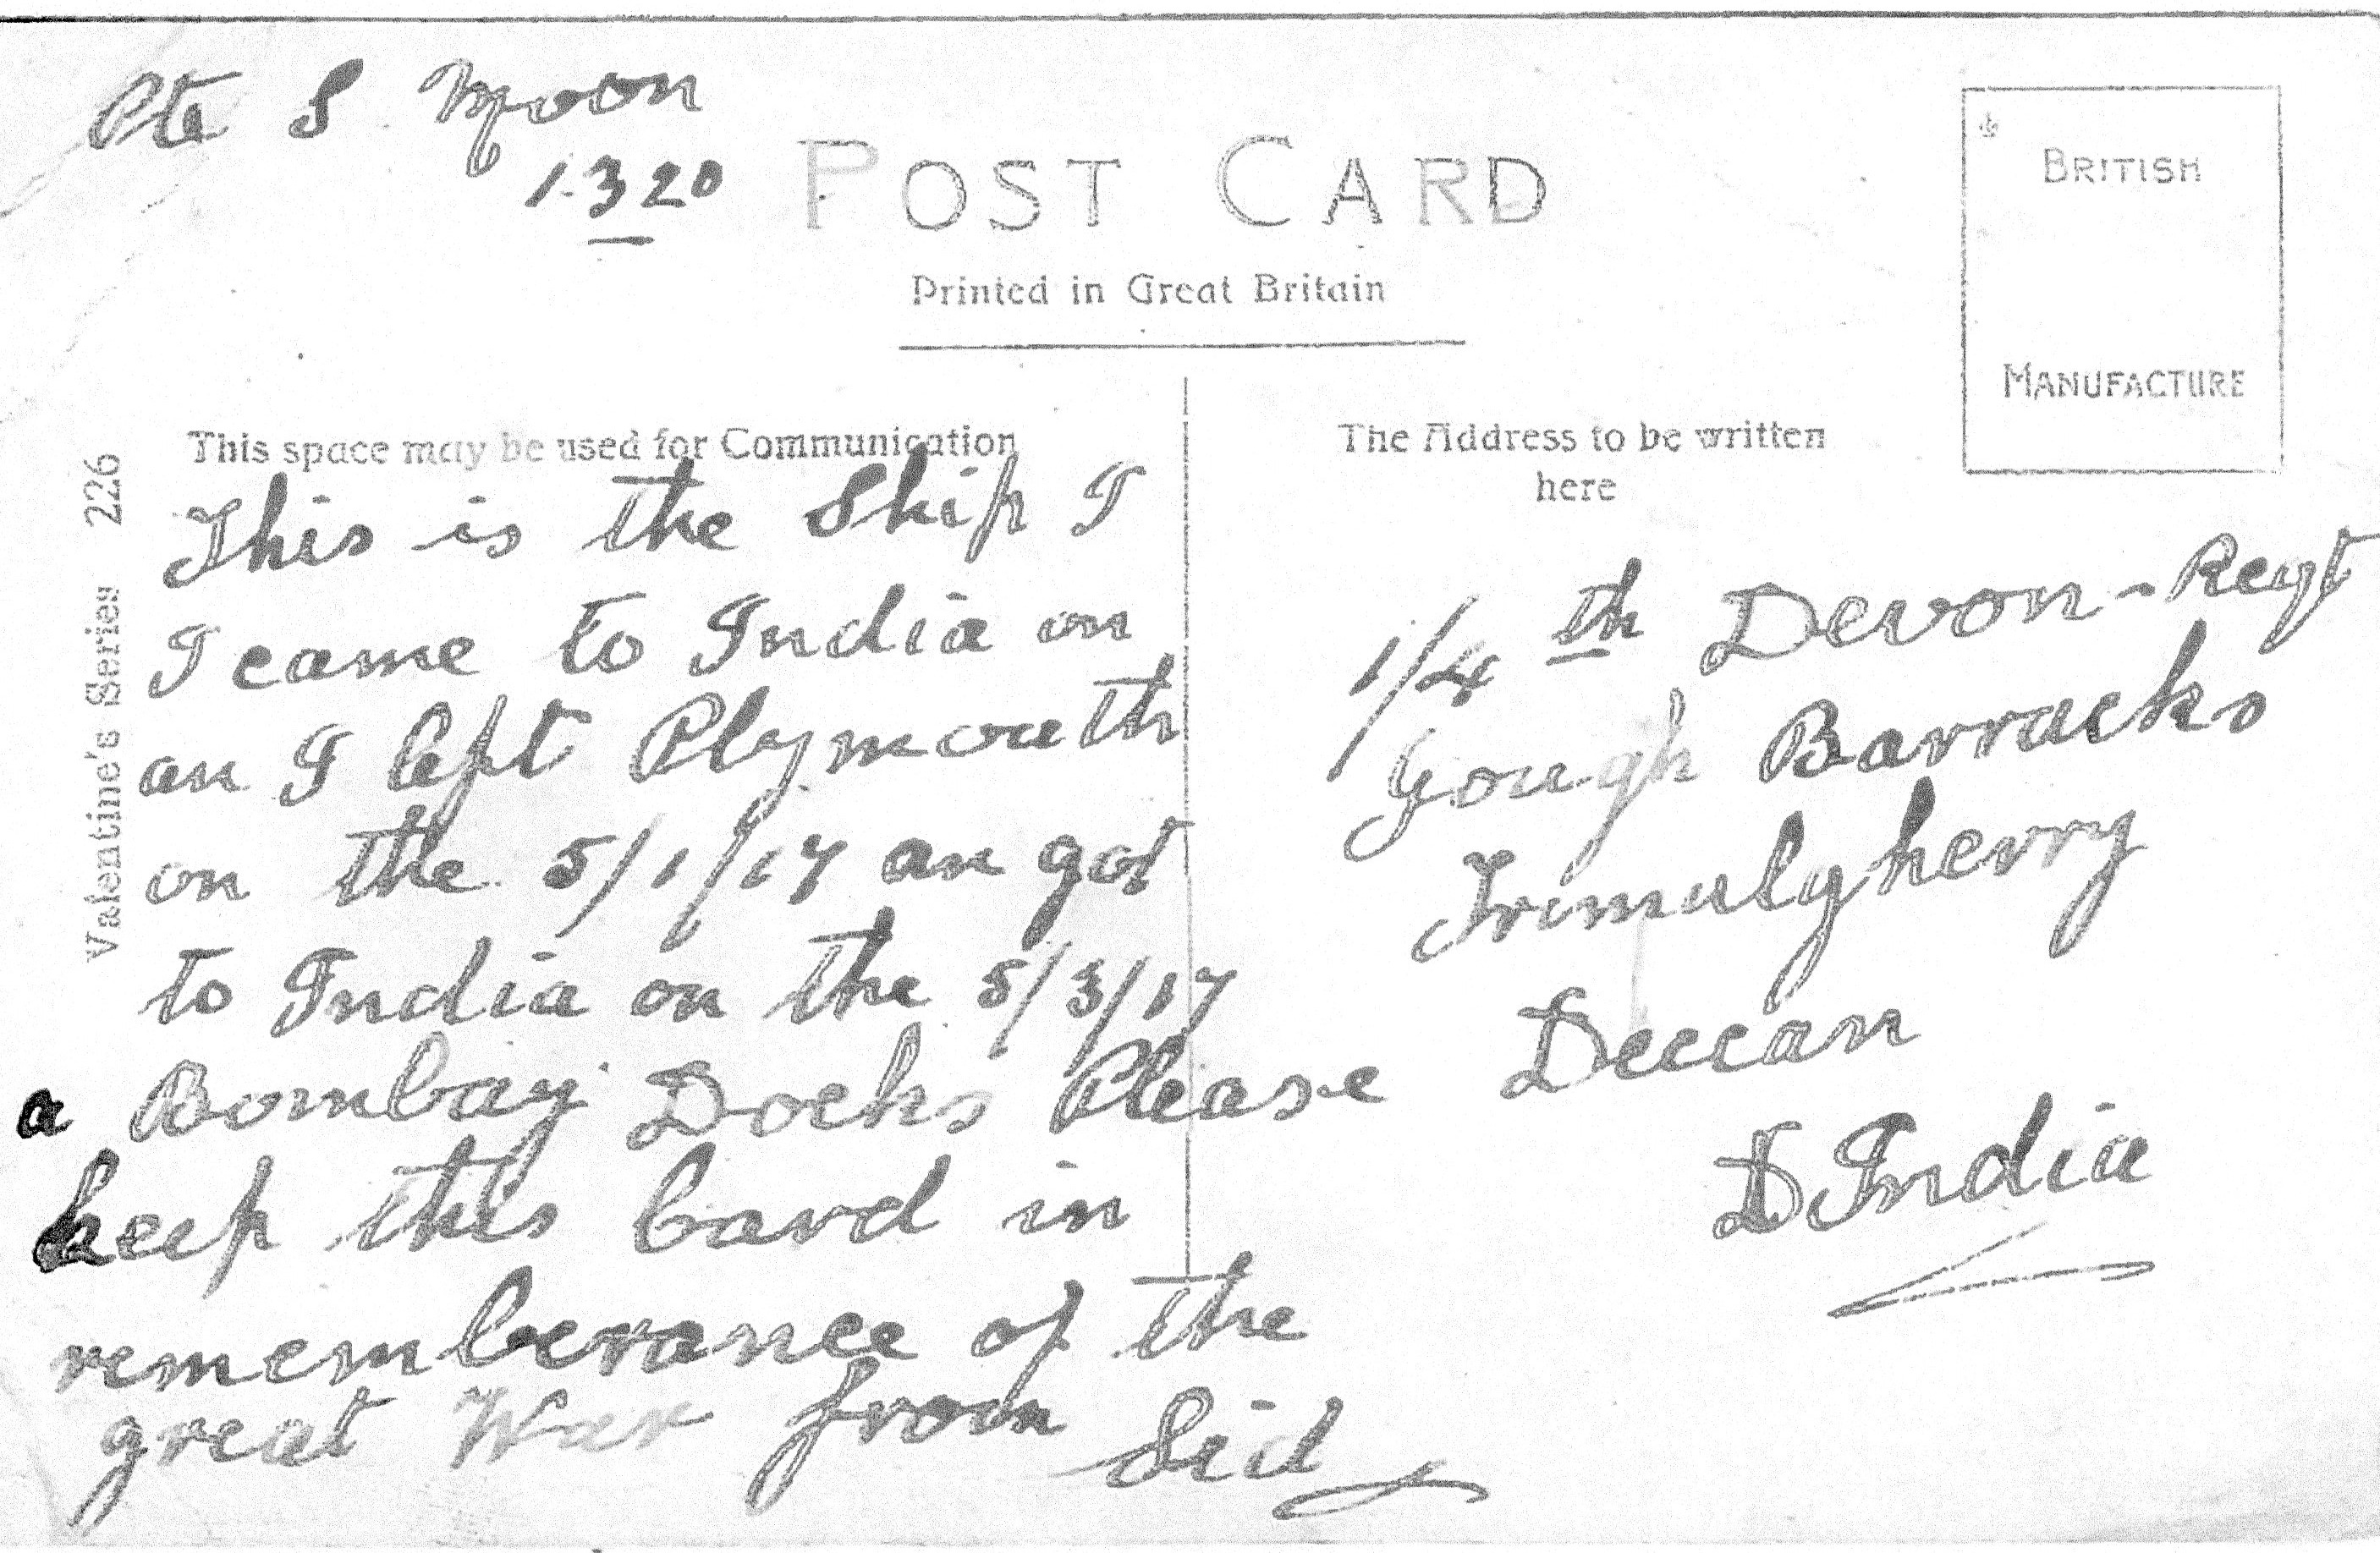 Pte S Moon
1320
POST CARD
Printed in Great Britain
BRITISH
MANUFACTURE
Valentine's Series 226
This space may be used for Communication
This is the Ship I
I came to India on
an I left Plymouth
on the 5/1/17 an got
to India on the 5/3/17
a Bombay Docks Please
keep this Card in
rememberance of the
great War from Sid
The Address to be written
here
1/4th Devon-Regt
Gough Barracks
Trimulgherry
Deccan
D India